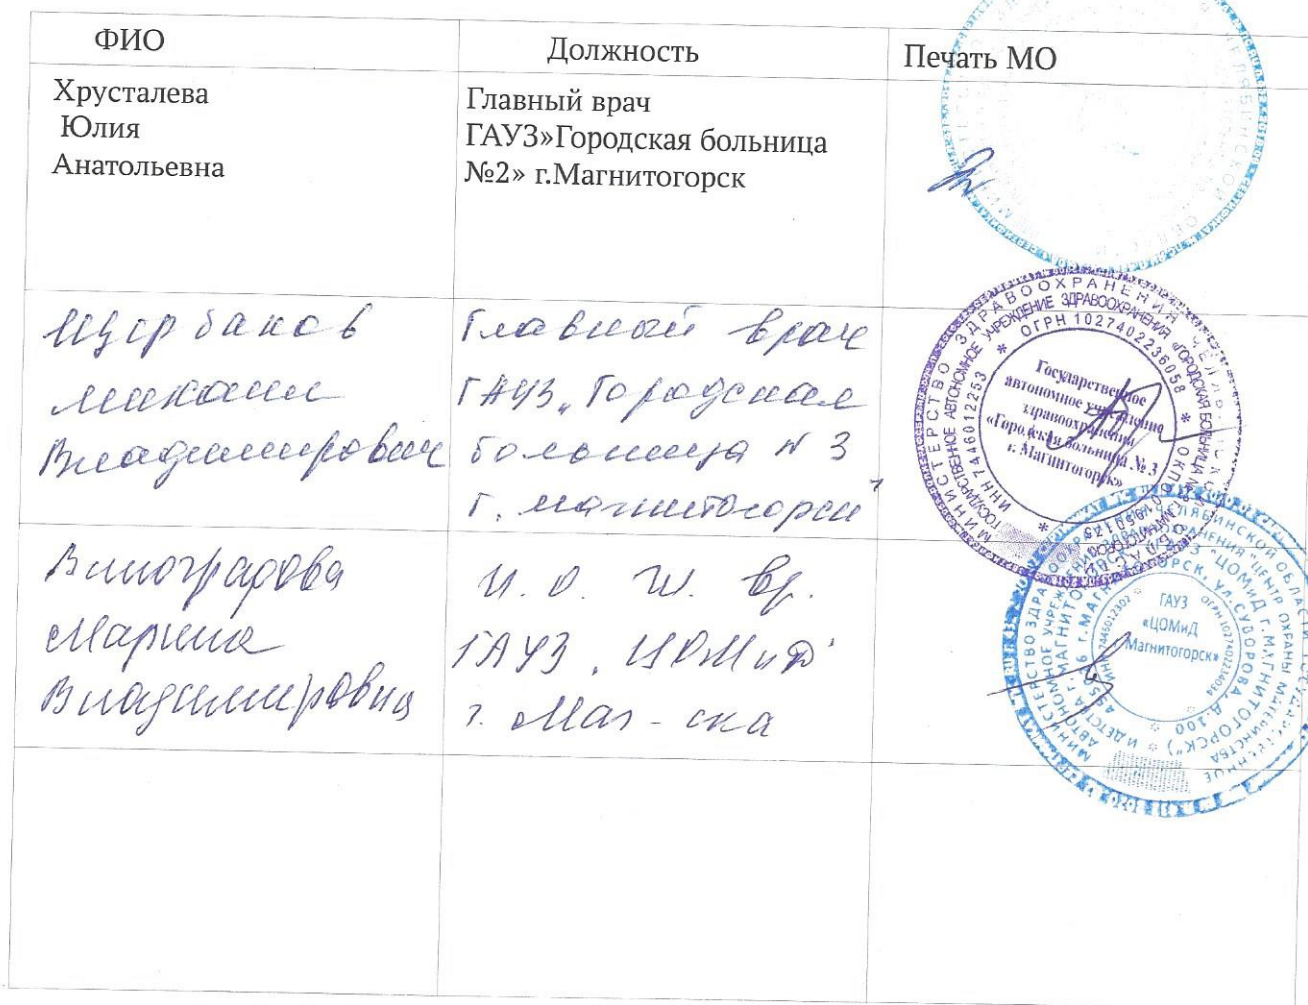 ФИО
Должность
Печать МО
Хрусталева
Юлия
Анатольевна
Главный врач
ГАУЗ»Городская больница
№2» г.Магнитогорск
Щербаков
Михаил
Владимирович
Главный врач
ГАУЗ „Городская
больница N 3
г. Магнитогорск"
МИНИСТЕРСТВО ЗДРАВООХРАНЕНИЯ
ГОСУДАРСТВЕННОЕ АВТОНОМНОЕ УЧРЕЖДЕНИЕ ЗДРАВООХРАНЕНИЯ «ГОРОДСКАЯ БОЛЬНИЦА
ИНН 7446012253 * ОГРН 1027402236058 * ОКПО
Государственное
автономное учреждение
здравоохранения
«Городская больница № 3
г. Магнитогорск»
Виноградова
Марина
Владимировна
И. О. гл. вр.
ГАУЗ „ЦОМиД"
г. Маг-ска
ГАУЗ
«ЦОМиД
Магнитогорск»